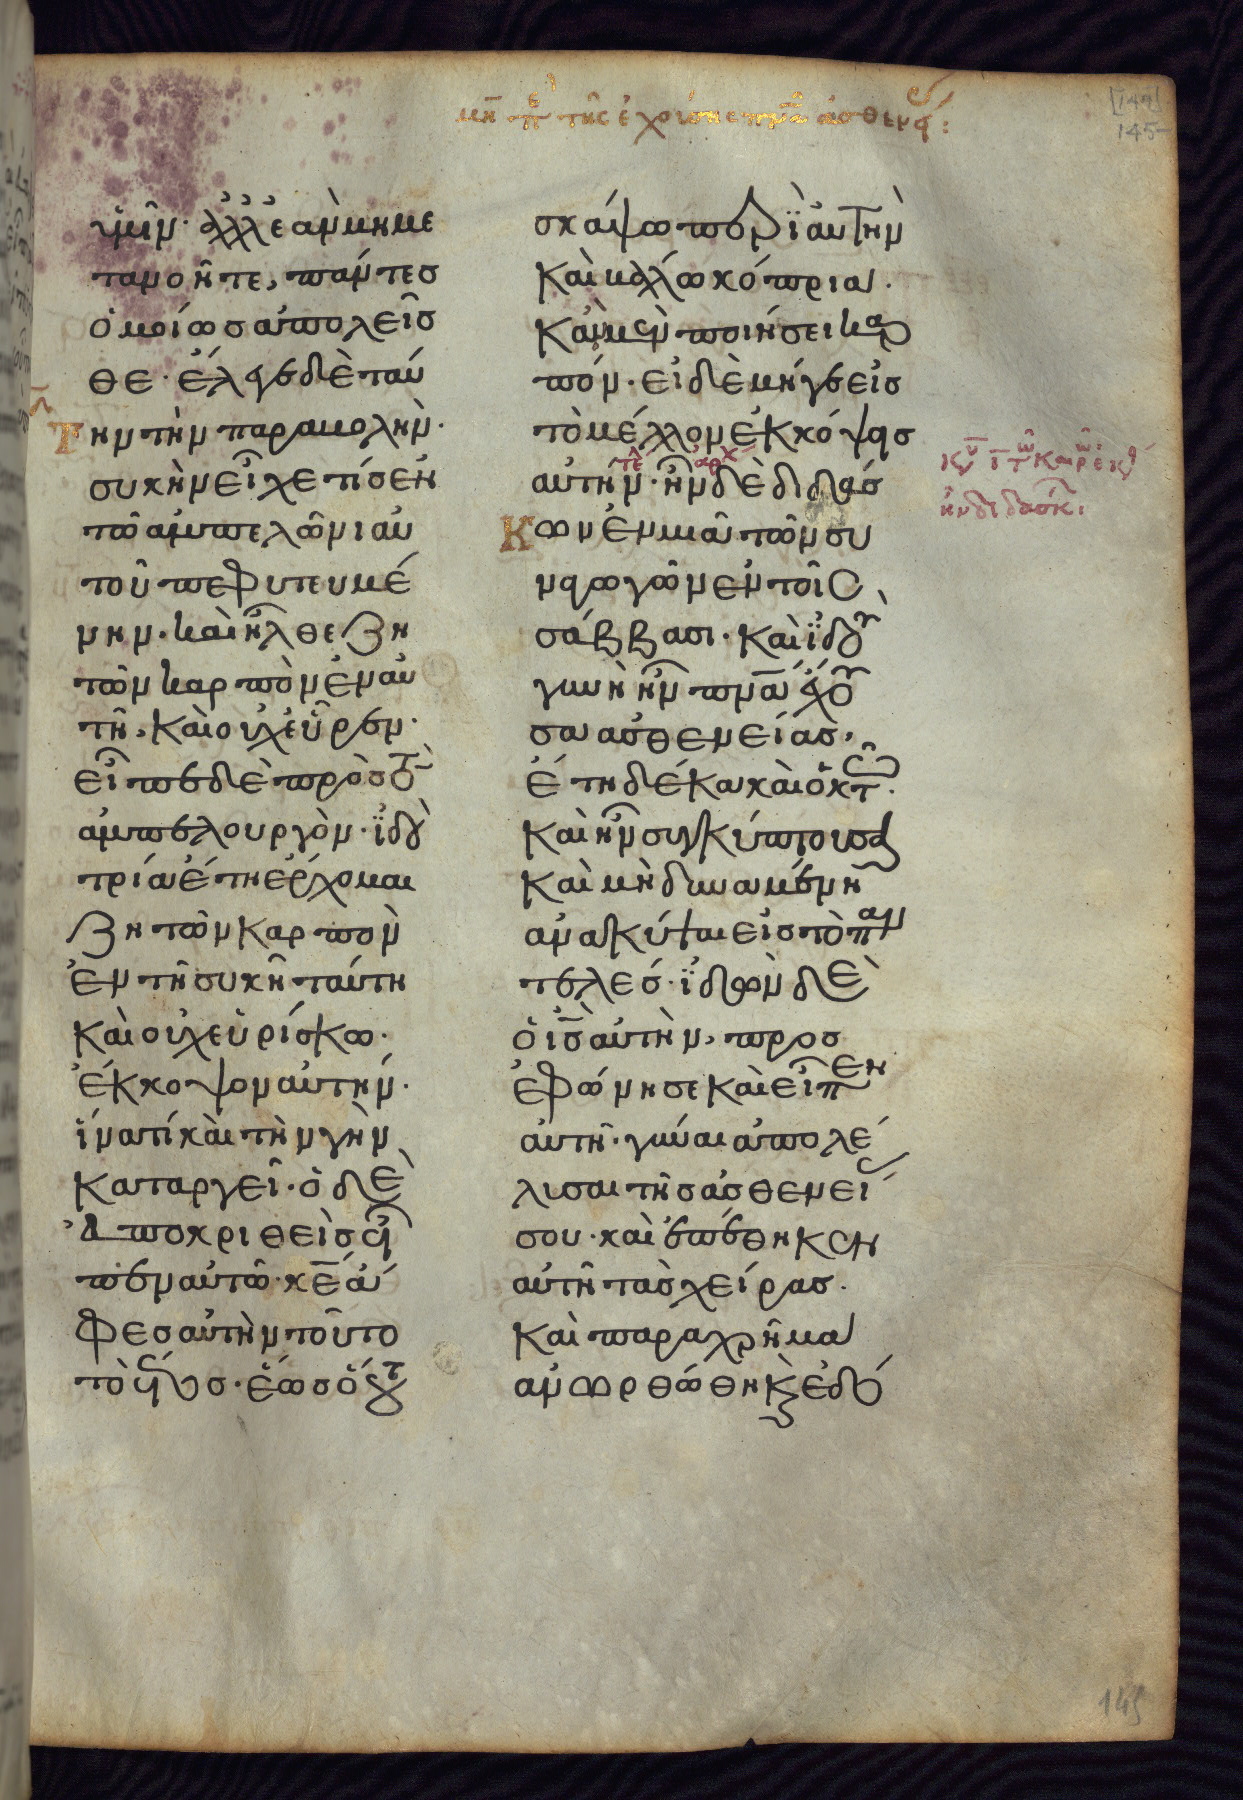 μη̅ π̅ε̅ τῆς ἐχούσης πν̅α̅ ἀσθενεί:
[149]
145
ὑμῖν· ἀλλ' ἐὰν μὴ με
τανοῆτε, πάντεσ
ὁμοίωσ ἀπολεῖσ
θε· ἔλεγε δὲ ταύ
την τὴν παραβολήν·
συκὴν εἶχε τίσ ἐν
τῶ ἀμπελῶνι αὐ
τοῦ πεφυτευμέ
νην· καὶ ἦλθε ζη
τῶν καρπὸν ἐν αὐ
τῆ· καὶ οὐχ εὗρεν·
εἶπε δὲ πρὸσ τὸν
ἀμπελουργόν· ἰδοὺ
τρία ἔτη ἔρχομαι
ζητῶν καρπὸν
ἐν τῆ συκῆ ταύτη
καὶ οὐχ εὑρίσκω·
ἔκκοψον αὐτήν·
ἵνα τί καὶ τὴν γὴν
καταργεῖ· ὁ δὲ
ἀποκριθεὶσ εἶ
πεν αὐτῶ· κ̅ε̅ ἄ
φεσ αὐτὴν τοῦτο
τὸ ἔτοσ· ἕωσ ὅτου
σκάψω περὶ αὐτὴν
καὶ βάλω κόπρια·
κἂν μὲν ποιήσει καρ
πόν· εἰ δὲ μήγε εἰσ
τὸ μέλλον ἐκκόψεισ
αὐτήν· ἦν δὲ διδάσ
τε αρχ
κων ἐν μιᾶ τῶν συ
ναγωγῶν ἐν τοῖσ
σάββασι· καὶ ἰδοὺ
γυνὴ ἦν πν̅α̅ ἔχου
σα ἀσθενείασ·
ἔτη δέκα καὶ ὀκτώ·
καὶ ἦν συγκύπτουσα
καὶ μὴ δυναμένη
ἀνακύψαι εἰσ τὸ παν
τελέσ· ἰδὼν δὲ
ὁ ι̅σ̅ αὐτὴν, προσ
εφώνησε καὶ εἶπεν
αὐτῆ· γύναι ἀπολέ
λυσαι τῆσ ἀσθενείασ
σου· καὶ ἐπέθηκεν
αὐτῆ τὰσ χεῖρασ·
καὶ παραχρῆμα
ἀνωρθώθη κ̀ ἐδό
145